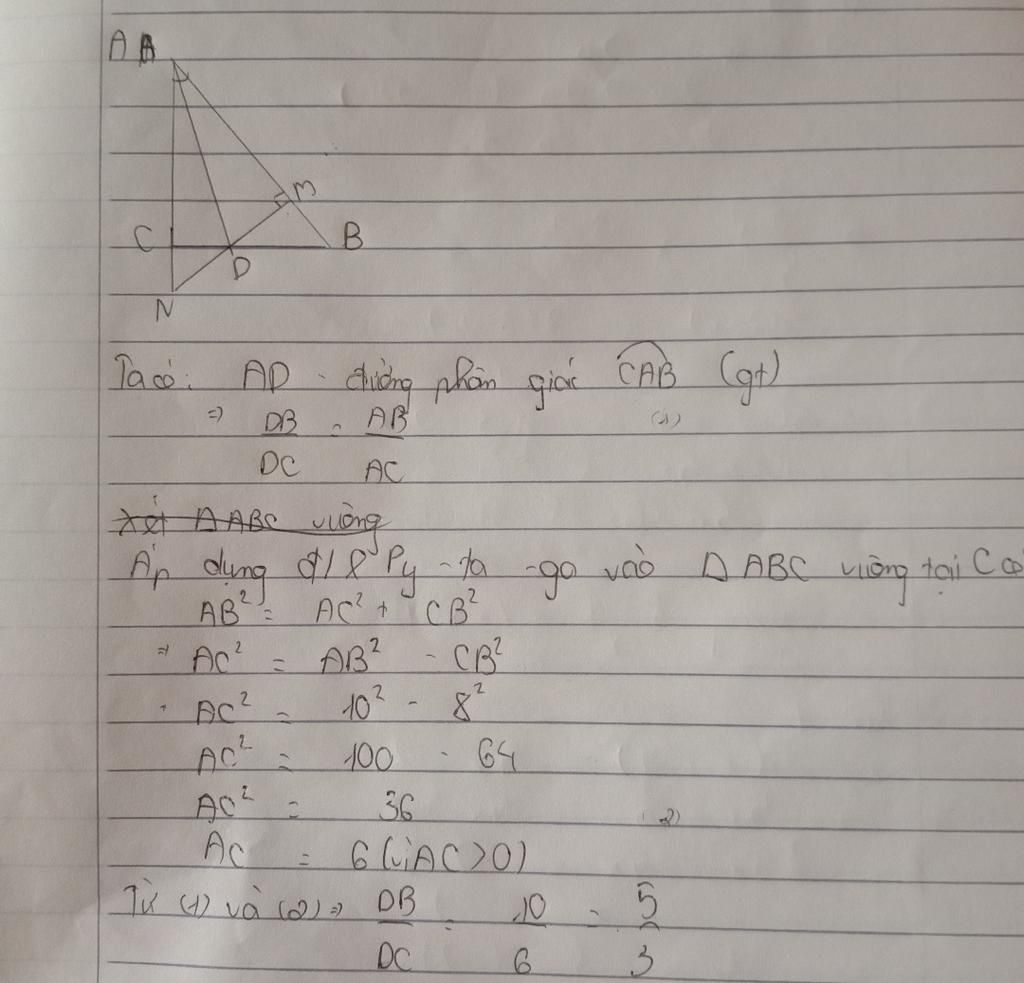 A A
M
C
B
D
N
Ta có: AD - đường phân giác CAB (gt)
=> DB/DC = AB/AC (1)
Xét Δ ABC vuông
Áp dụng đ/l Py-ta-go vào Δ ABC vuông tại C có
AB² = AC² + CB²
=> AC² = AB² - CB²
AC² = 10² - 8²
AC² = 100 - 64
AC² = 36
AC = 6 (vì AC > 0) (2)
Từ (1) và (2) => DB/DC = 10/6 = 5/3